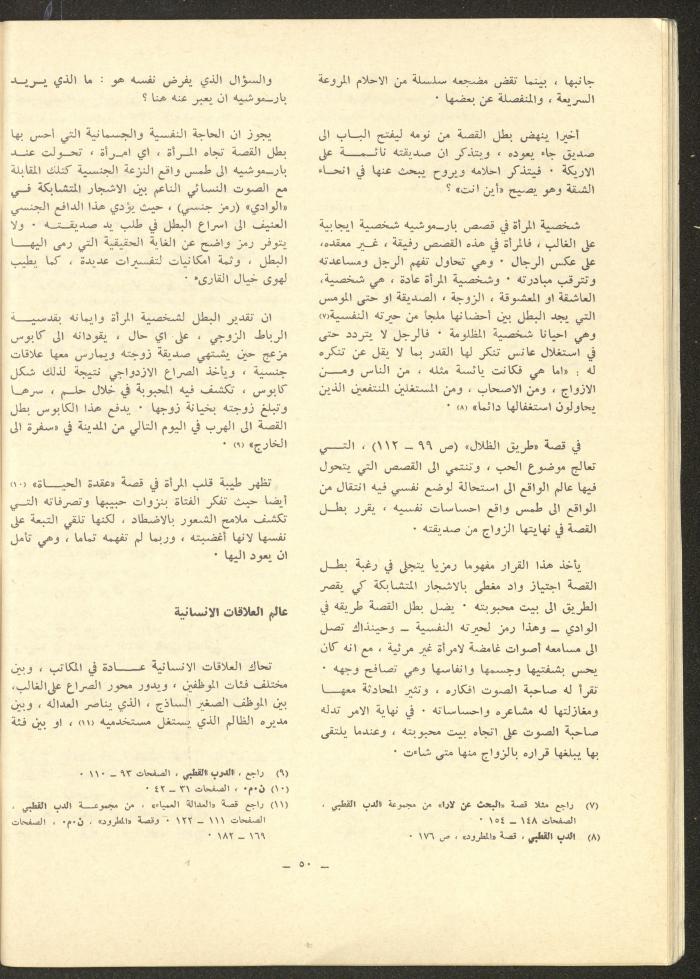 جانبها ، بينما تقض مضجعه سلسلة من الاحلام المروعة
السريعة ، والمنفصلة عن بعضها ٠
أخيرا ينهض بطل القصة من نومه ليفتح الباب الى
صديق جاء يعوده ، ويتذكر ان صديقته نائمة على
الاريكة ٠ فيتذكر احلامه ويروح يبحث عنها في انحاء
الشقة وهو يصيح «أين انت» ؟
شخصية المرأة في قصص بار_موشيه شخصية ايجابية
على الغالب ، فالمرأة في هذه القصص رفيقة ، غير معقده،
على عكس الرجال ٠ وهي تحاول تفهم الرجل ومساعدته
وتترقب مبادرته ٠ وشخصية المرأة عادة ، هي شخصية،
العاشقة او المعشوقة ، الزوجة ، الصديقة او حتى المومس
التي يجد البطل بين أحضانها ملجأ من حيرته النفسية(٧)
وهي احيانا شخصية المظلومة ٠ فالرجل لا يتردد حتى
في استغلال عانس تنكر لها القدر بما لا يقل عن تنكره
له : «اما هي فكانت يائسة مثله ، من الناس ومن
الازواج ، ومن الاصحاب ، ومن المستغلين المنتفعين الذين
يحاولون استغفالها دائما» (٨) ٠
في قصة «طريق الظلال» (ص ٩٩ ـ ١١٢) ، التي
تعالج موضوع الحب ، وتنتمي الى القصص التي يتحول
فيها عالم الواقع الى استحالة لوضع نفسي فيه انتقال من
الواقع الى طمس واقع احساسات نفسيه ، يقرر بطل
القصة في نهايتها الزواج من صديقته ٠
يأخذ هذا القرار مفهوما رمزيا يتجلى في رغبة بطل
القصة اجتياز واد مغطى بالاشجار المتشابكة كي يقصر
الطريق الى بيت محبوبته ٠ يضل بطل القصة طريقه في
الوادي ـ وهذا رمز لحيرته النفسية ـ وحينذاك تصل
الى مسامعه أصوات غامضة لامرأة غير مرئية ، مع انه كان
يحس بشفتيها وجسمها وانفاسها وهي تصافح وجهه ٠
تقرأ له صاحبة الصوت افكاره ، وتثير المحادثة معها
ومغازلتها له مشاعره واحساساته ٠ في نهاية الامر تدله
صاحبة الصوت على اتجاه بيت محبوبته ، وعندما يلتقى
بها يبلغها قراره بالزواج منها متى شاءت ٠
(٧) راجع مثلا قصة «البحث عن لارا» من مجموعة الدب القطبي ،
الصفحات ١٤٨ ـ ١٥٤ ٠
(٨) الدب القطبي ، قصة «المطرود» ، ص ١٧٦ ٠
والسؤال الذي يفرض نفسه هو : ما الذي يريد
بار_موشيه ان يعبر عنه هنا ؟
يجوز ان الحاجة النفسية والجسمانية التي أحس بها
بطل القصة تجاه المرأة ، اي امرأة ، تحولت عند
بار_موشيه الى طمس واقع النزعة الجنسية كتلك المقابلة
مع الصوت النسائي الناعم بين الاشجار المتشابكة في
«الوادي» (رمز جنسي) ، حيث يؤدي هذا الدافع الجنسي
العنيف الى اسراع البطل في طلب يد صديقته ٠ ولا
يتوفر رمز واضح عن الغاية الحقيقية التي رمى اليها
البطل ، وثمة امكانيات لتفسيرات عديدة ، كما يطيب
لهوى خيال القارىء ٠
ان تقدير البطل لشخصية المرأة وايمانه بقدسية
الرباط الزوجي ، على اي حال ، يقودانه الى كابوس
مزعج حين يشتهي صديقة زوجته ويمارس معها علاقات
جنسية ، ويأخذ الصراع الازدواجي نتيجة لذلك شكل
كابوس ، تكشف فيه المحبوبة في خلال حلم ، سرها
وتبلغ زوجته بخيانة زوجها ٠ يدفع هذا الكابوس بطل
القصة الى الهرب في اليوم التالي من المدينة في «سفرة الى
الخارج» (٩) ٠
تظهر طيبة قلب المرأة في قصة «عقدة الحياة» (١٠)
أيضا حيث تفكر الفتاة بنزوات حبيبها وتصرفاته التي
تكشف ملامح الشعور بالاضطاد ، لكنها تلقي التبعة على
نفسها لانها أغضبته ، وربما لم تفهمه تماما ، وهي تأمل
ان يعود اليها ٠
عالم العلاقات الانسانية
تحاك العلاقات الانسانية عادة في المكاتب ، وبين
مختلف فئات الموظفين ، ويدور محور الصراع على الغالب،
بين الموظف الصغير الساذج ، الذي يناصر العداله ، وبين
مديره الظالم الذي يستغل مستخدميه (١١) ، او بين فئة
(٩) راجع ، الدب القطبي ، الصفحات ٩٣ ـ ١١٠ ٠
(١٠) ن٠م٠ ، الصفحات ٣١ ـ ٤٢ ٠
(١١) راجع قصة «العدالة العمياء» ، من مجموعة الدب القطبي ،
الصفحات ١١١ ـ ١٢٢ ٠ وقصة «المطرود» ، ن٠م٠ ، الصفحات
١٦٩ ـ ١٨٢ ٠
ـ ٥٠ ـ